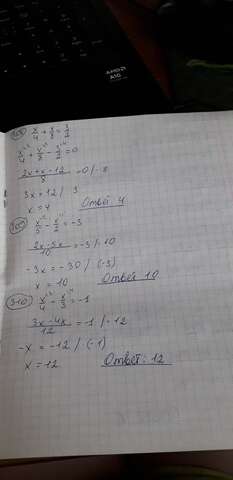 AMD
A10
x/4 + x/8 = 3/2
x/4 + x/8 - 3/2 = 0
(2x+x-12)/8 = 0 /·8
3x = 12 / 3
x = 4 Ответ 4
x/5 - x/2 = -3
(2x-5x)/10 = -3 /·10
-3x = -30 / (-3)
x = 10 Ответ 10
310 x/4 - x/3 = -1
(3x-4x)/12 = -1 /·12
-x = -12 / (-1)
x = 12 Ответ: 12